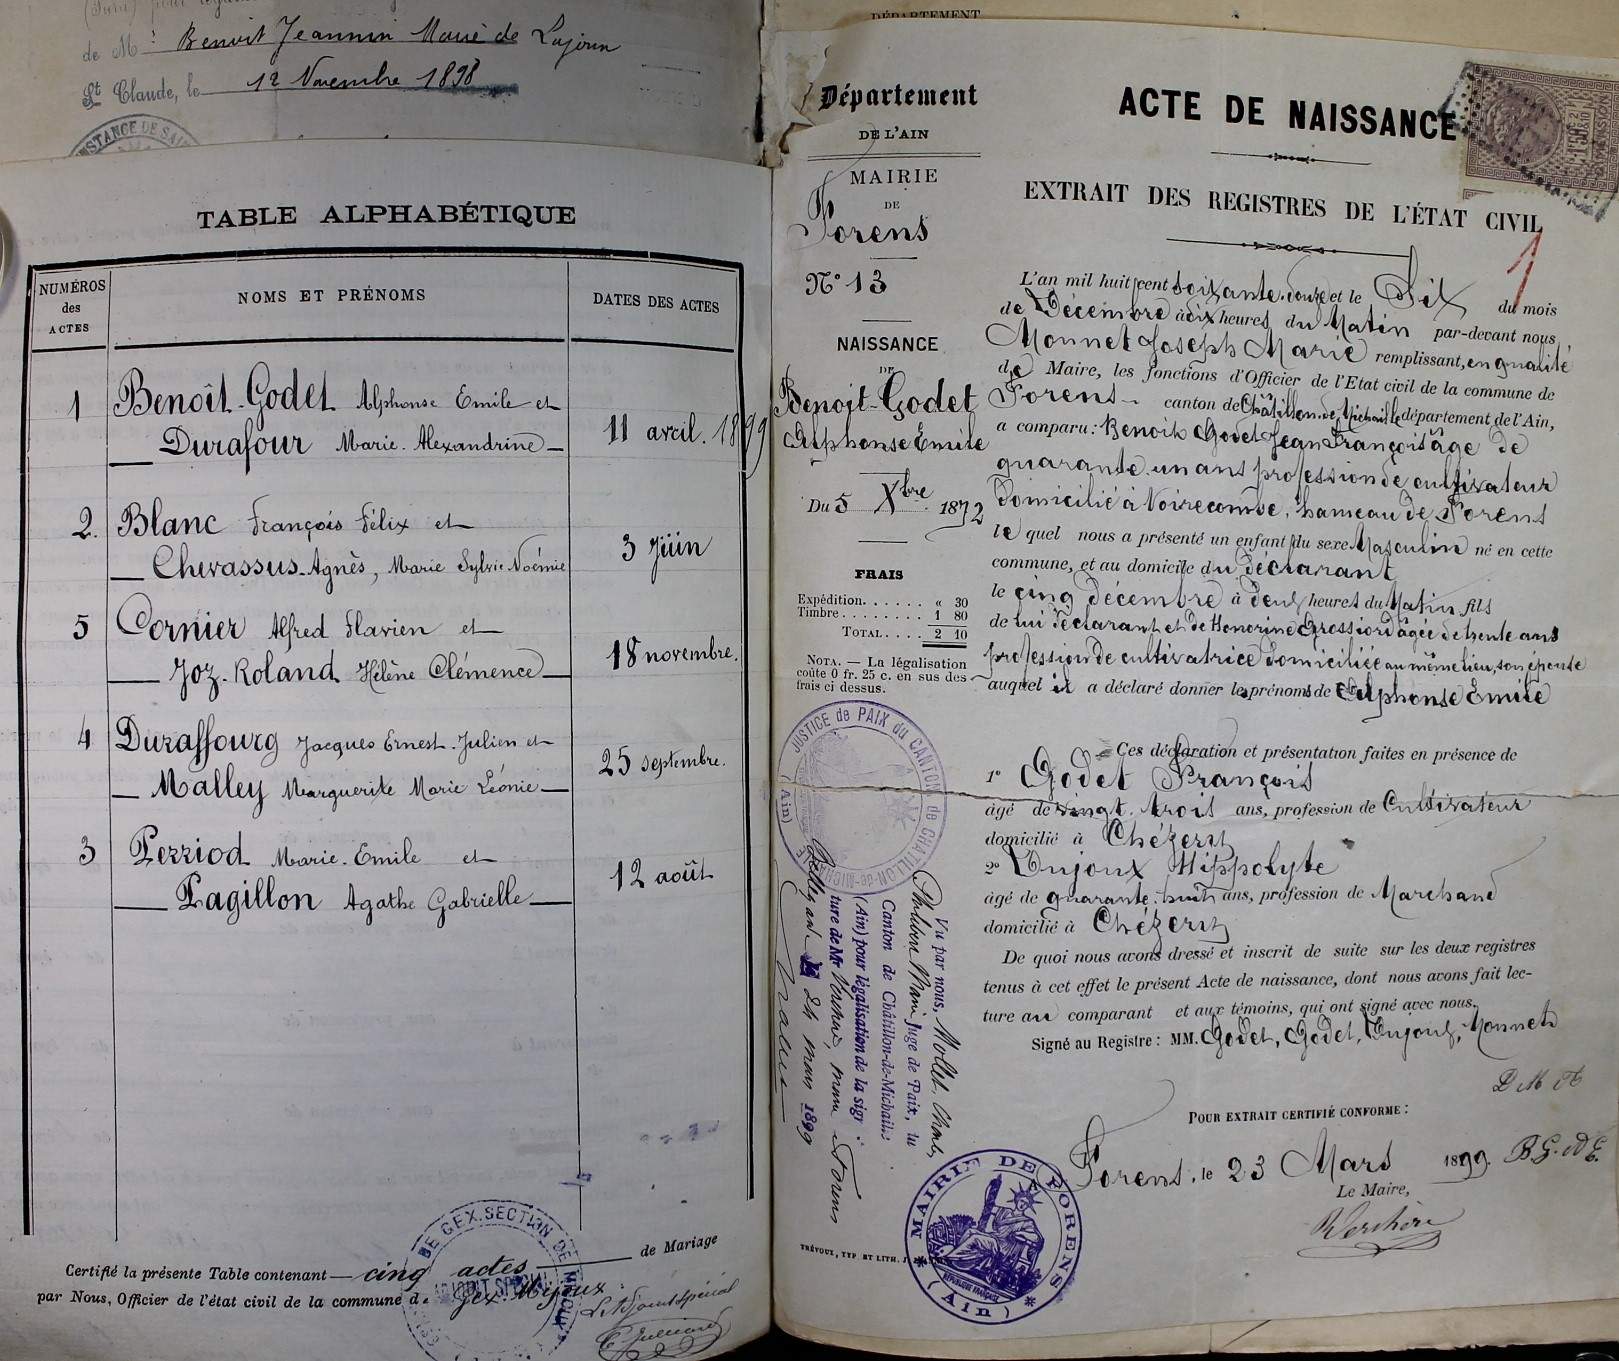 de M Benoit Jeannin Marie de Lajoux
St Claude, le 12 Novembre 1898
TABLE ALPHABÉTIQUE
NUMÉROS des ACTES
NOMS ET PRÉNOMS
DATES DES ACTES
1 Benoît-Godet Alphonse Emile et
Durafour Marie-Alexandrine
11 avril 1899
2. Blanc François Félix et
Chevassus-Agnès, Marie Sylvie Noémie
3 Juin
5 Cornier Alfred Flavien et
Joz-Roland Hélène Clémence
18 novembre.
4 Duraffourg Jacques Ernest-Julien et
Malley Marguerite Marie Léonie
25 septembre.
3 Perriod Marie-Emile et
Pagillon Agathe Gabrielle
12 août
Certifié la présente Table contenant cinq actes de Mariage
par Nous, Officier de l'état civil de la commune de Gex-Mijoux
L'Adjoint spécial
DE GEX. SECTION DE MIJOUX
DÉPARTEMENT
Département
DE L'AIN
MAIRIE
DE
Forens
N° 13
NAISSANCE
DE
Benoit-Godet
Alphonse Emile
Du 5 Xbre 1872
FRAIS
Expédition...... « 30
Timbre........ 1 80
TOTAL.... 2 10
NOTA. — La légalisation
coûte 0 fr. 25 c. en sus des
frais ci dessus.
JUSTICE de PAIX du CANTON de CHATILLON-de-MICHAILLE (Ain)
Vu par nous, Mollet, Charles,
Philibert Marie Juge de Paix, du
Canton de Châtillon-de-Michaille
(Ain) pour légalisation de la signa
ture de Mr maire Forens
24 mars 1899
ACTE DE NAISSANCE
EXTRAIT DES REGISTRES DE L'ÉTAT CIVIL
1
L'an mil huit cent soixante-douze et le Six du mois
de Décembre à dix heures du Matin par-devant nous
Monnet Joseph Marie remplissant, en qualité
de Maire, les fonctions d'Officier de l'Etat civil de la commune de
Forens canton de Châtillon-de-Michaille département de l'Ain,
a comparu: Benoit Godet Jean François âgé de
quarante-un ans profession de cultivateur
domicilié à Noirecombe, hameau de Forens
lequel nous a présenté un enfant du sexe Masculin né en cette
commune, et au domicile du déclarant
le cinq décembre à deux heures du Matin fils
de lui déclarant et de Honorine Grossiord âgée de trente ans
profession de cultivatrice domiciliée au même lieu, son épouse
auquel il a déclaré donner les prénoms de Alphonse Emile
Ces déclaration et présentation faites en présence de
1° Godet François
âgé de vingt-trois ans, profession de Cultivateur
domicilié à Chézery
2° Dujoux Hippolyte
âgé de quarante-huit ans, profession de Marchand
domicilié à Chézery
De quoi nous avons dressé et inscrit de suite sur les deux registres
tenus à cet effet le présent Acte de naissance, dont nous avons fait lec-
ture au comparant et aux témoins, qui ont signé avec nous.
Signé au Registre: MM. Godet, Godet, Dujoux, Monnet
POUR EXTRAIT CERTIFIÉ CONFORME:
Forens, le 23 Mars 1899.
Le Maire,
MAIRIE DE FORENS (Ain)
RÉPUBLIQUE FRANÇAISE
TRÉVOUX, TYP ET LITH. J.